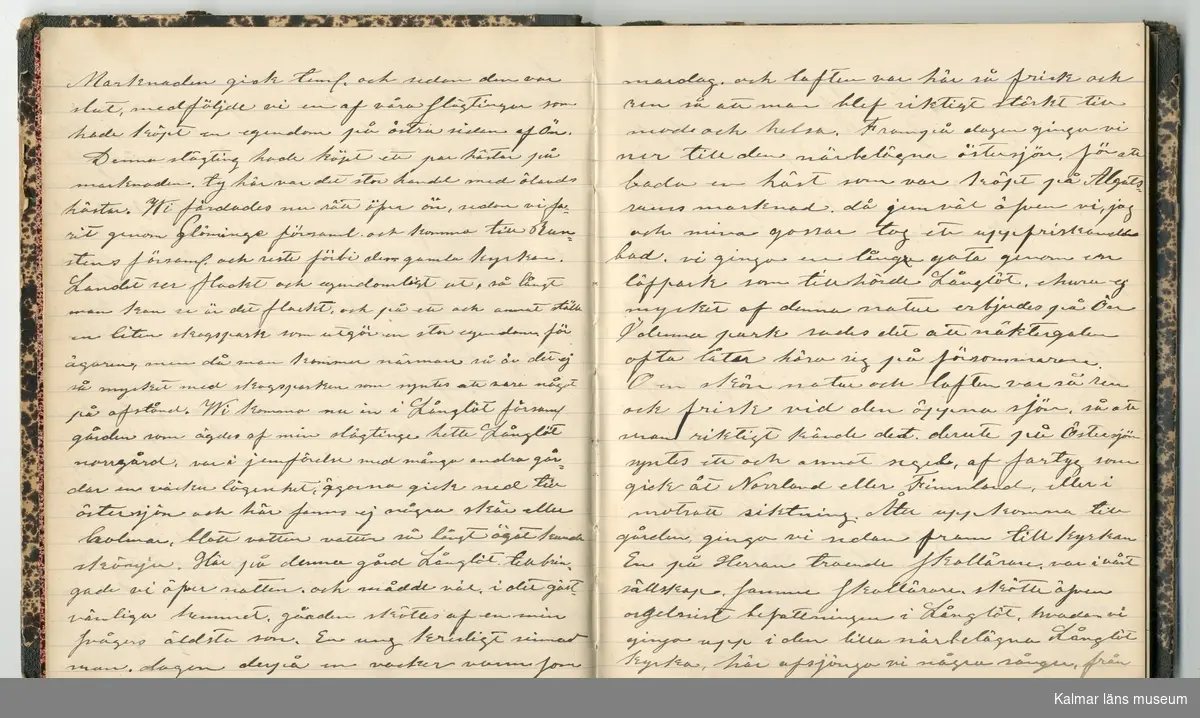 Marknaden gick and sedan den var
slut, medföljde vi en af våra slägtingar som
hade köpt en egendom på östra sidan af Ön.
Denna slägting hade köpt ett par hästar på
marknaden. ty här var det stor handel med ölands
hästar. Wi färdades nu rätt öfver ön, sedan vi fa-
rit genom Glöminge församl. och komma till Run-
stens församl. och reste förbi dess gamla kyrka.
Landet ser flackt och egendomligt ut, så långt
man kan se är det flackt, och på ett och annat ställe
en liten skogspark som utgör en stor egendom för
ägaren, men då man kommer närmare så är det ej
så mycket med skogsparken som syntes att vara något
på afstånd. Wi komma nu in i Långlöt församl
gården som ägdes af min slägtinge hette Långlöt
norrgård. var i jemförelse med många andra går-
dar en vacker lägenhet, ägorna gick ned till
östersjön och här fanns ej några skär eller
holmar, blott vatten vatten så långt ögat kunde
skönja. Här på denna gård Långlöt tillbrin-
gade vi öfver natten. och mådde väl, i det gäst
vänliga hemmet, gården sköttes af en min
svågers äldsta son. En ung kristligt sinnad
man. dagen derpå en vacker varm som
mardag. och luften var här så frisk och
ren så att man blef riktigt stärkt till
mod och helsa. Frampå dagen gingo vi
ner till den närbelägna östersjön, för att
bada en häst som var köpt på Alguts-
rums marknad. då jemväl äfven vi, jag
och mina gossar tog ett uppfriskande
bad. vi gingo en lång gata genom en
löfpark som tillhörde Långlöt, churu ej
mycket af denna natur erbjudes på Ön
I denna park sades det att näktergalen
ofta låter höra sig på försommaren.
O en skön natur och luften var så ren
och frisk vid den öppna sjön, så att
man riktigt kände det. derute på Östersjön
syntes ett och annat segel, af fartyg som
gick åt Norrland eller Finnland, eller i
motsatt siktning. Åter uppkomna till
gården, gingo vi sedan fram till kyrkan
En på Herran troende Skollärare, var i vårt
sällskap. samme Skollärare skötte äfven
orgelnist befattningen i Långlöt, hvadan vi
gingo upp i den lilla närbelägna Långlöt
kyrka, här afsjöngo vi några sånger, från
Kalmar läns museum